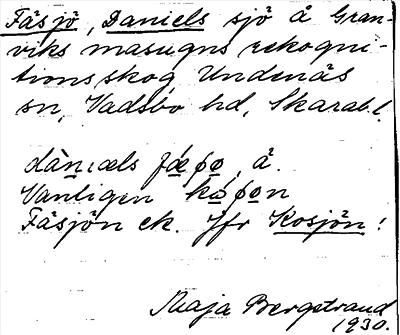 Fäsjö, Daniels sjö å Gran-
viks masugns rekogni-
tionsskog, Undenäs
sn, Vadsbo hd, Skarab.l.
dànɩæls fǽɸo, å.
Vanligen kǿɸon
Fäsjön ek. Jfr Kosjön!
Maja Bergstrand
1930.